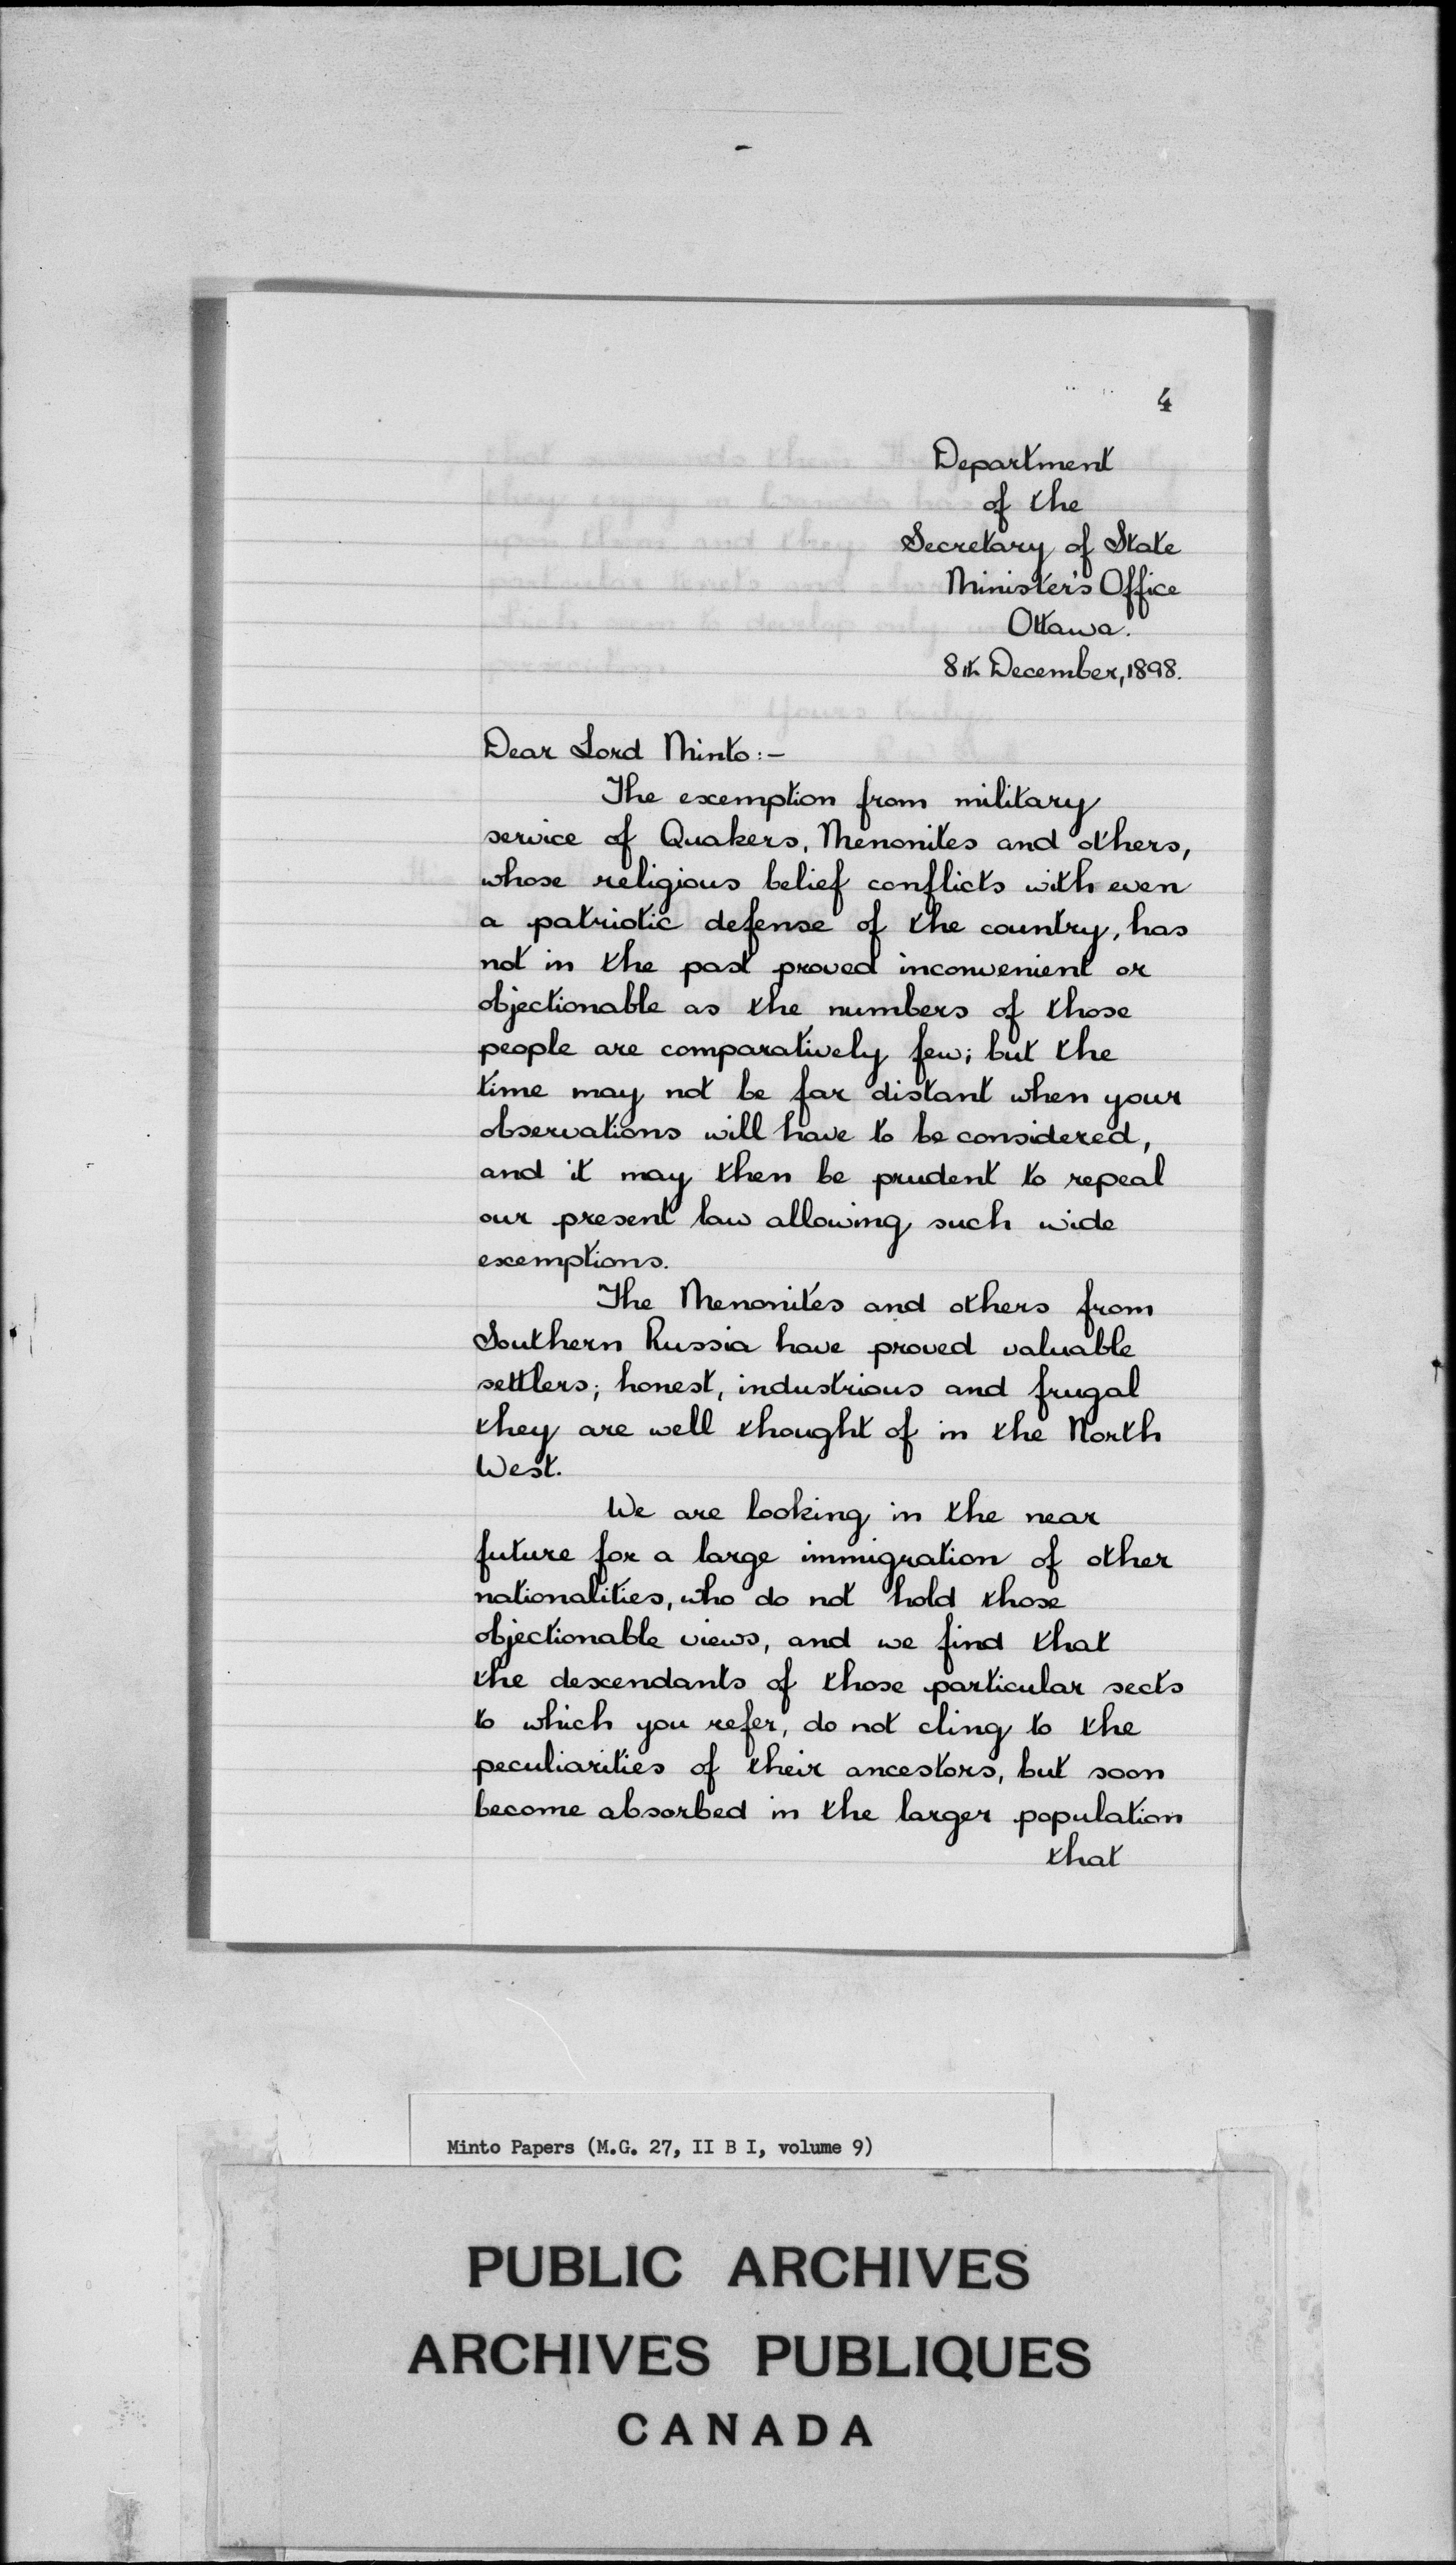 4
Department
of the
Secretary of State
Minister's Office
Ottawa.
8th December, 1898.
Dear Lord Minto:-
The exemption from military
service of Quakers, Menonites and others,
whose religious belief conflicts with even
a patriotic defense of the country, has
not in the past proved inconvenient or
objectionable as the numbers of those
people are comparatively few; but the
time may not be far distant when your
observations will have to be considered,
and it may then be prudent to repeal
our present law allowing such wide
exemptions.
The Menonites and others from
Southern Russia have proved valuable
settlers; honest, industrious and frugal
they are well thought of in the North
West.
We are looking in the near
future for a large immigration of other
nationalities, who do not hold those
objectionable views, and we find that
the descendants of those particular sects
to which you refer, do not cling to the
peculiarities of their ancestors, but soon
become absorbed in the larger population
that
Minto Papers (M.G. 27, II B I, volume 9)
PUBLIC ARCHIVES
ARCHIVES PUBLIQUES
CANADA